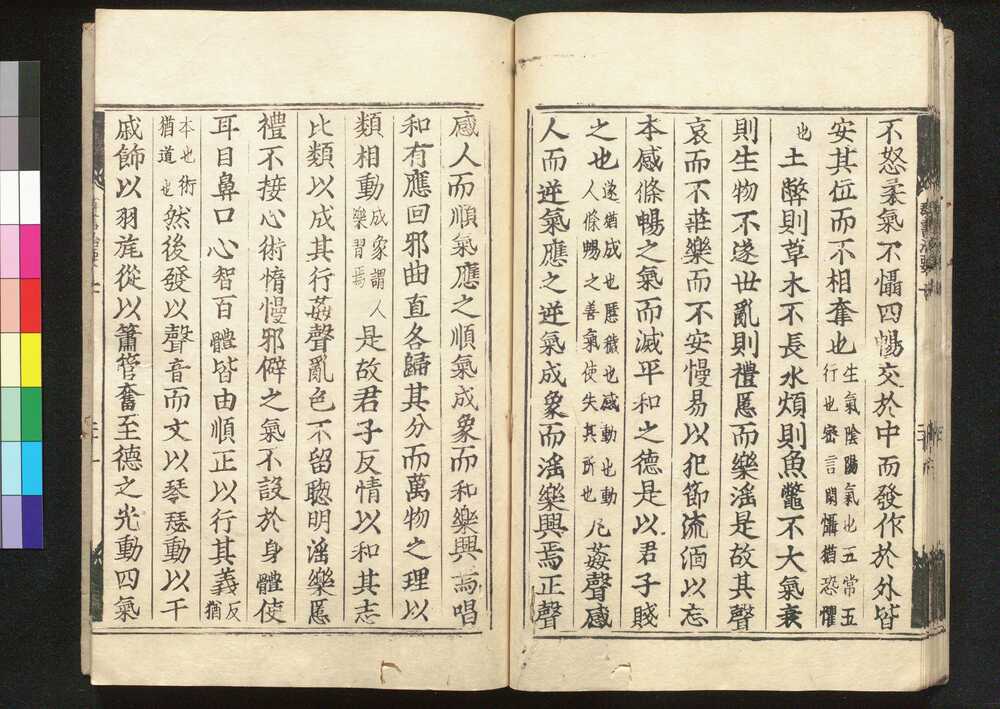 不怒柔氣不懾四暢交於中而發作於外皆
安其位而不相奪也生氣陰陽氣也五常五行也密言閑懾猶恐懼
也土弊則草木不長水煩則魚鼈不大氣衰
則生物不遂世亂則禮慝而樂滛是故其聲
哀而不莊樂而不安慢易以犯節流湎以忘
本感條暢之氣而滅平和之德是以君子賤
之也遂猶成也慝穢也感動也動人條暢之善氣使失其所也凡姦聲感
人而逆氣應之逆氣成象而滛樂興焉正聲
感人而順氣應之順氣成象而和樂興焉唱
和有應回邪曲直各歸其分而萬物之理以
類相動成象謂人樂習焉是故君子反情以和其志
比類以成其行姦聲亂色不留聦明滛樂慝
禮不接心術惰慢邪僻之氣不設於身體使
耳目鼻口心智百體皆由順正以行其義反猶
本也術猶道也然後發以聲音而文以琴瑟動以干
戚飾以羽旄從以簫管奮至德之光動四氣